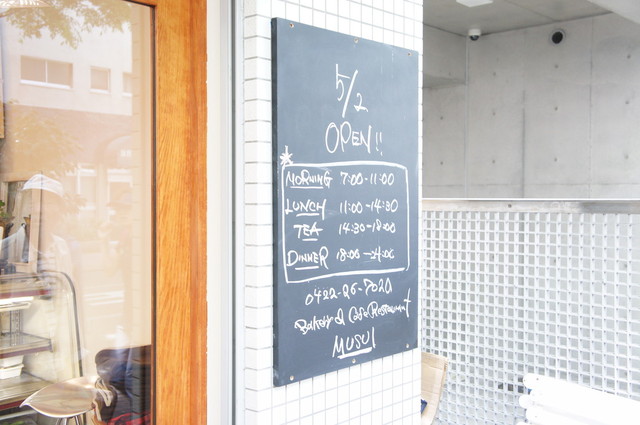 5/2
OPEN!!
MORNING 7:00-11:00
LUNCH 11:00-14:30
TEA 14:30-18:00
DINNER 18:00-24:00
0422-26-7020
Bakery & Cafe Restaurant
MUSUI